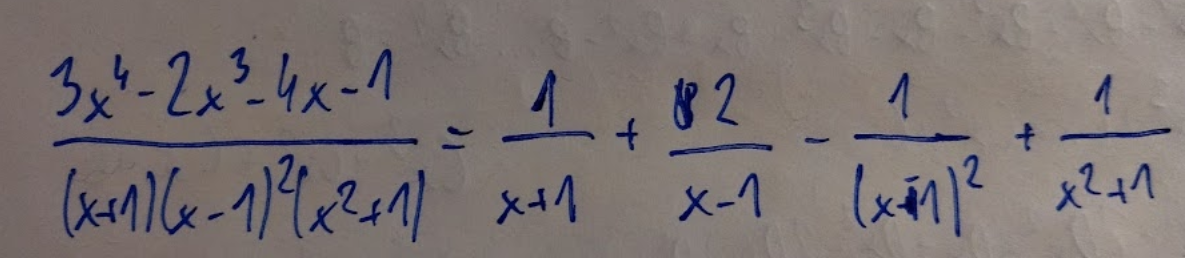 (3x⁴-2x³-4x-1)/((x+1)(x-1)²(x²+1)) = 1/(x+1) + 2/(x-1) - 1/(x-1)² + 1/(x²+1)